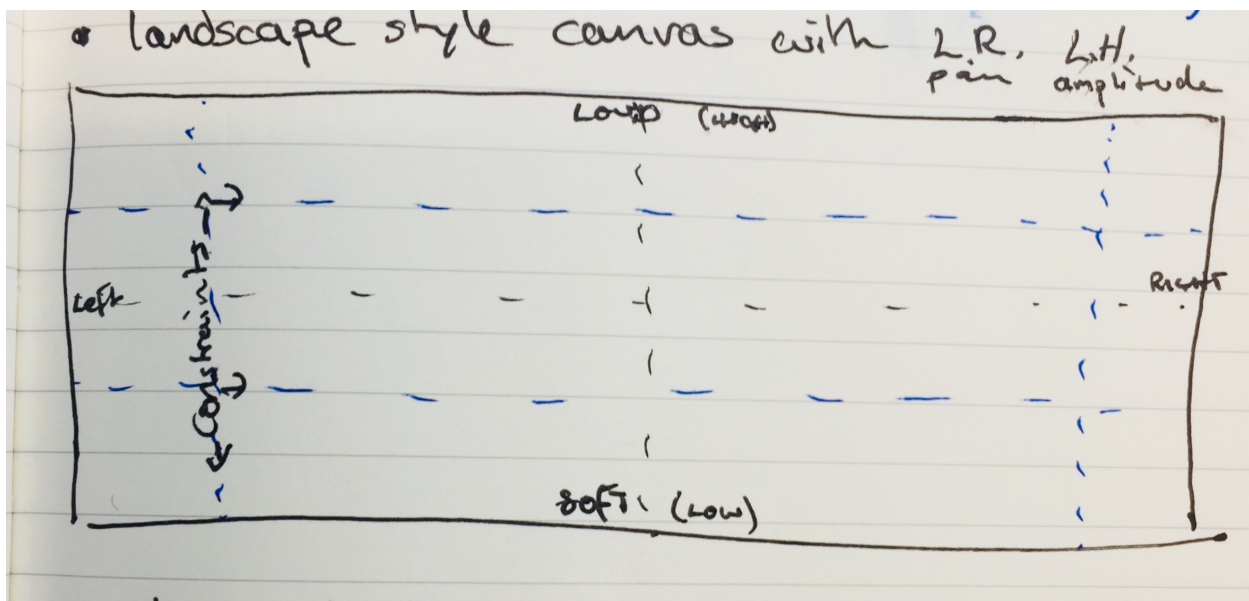 • landscape style canvas with L.R. pan L.H. amplitude
LOUD (HIGH)
Constraints
Left
RIGHT
SOFT (LOW)